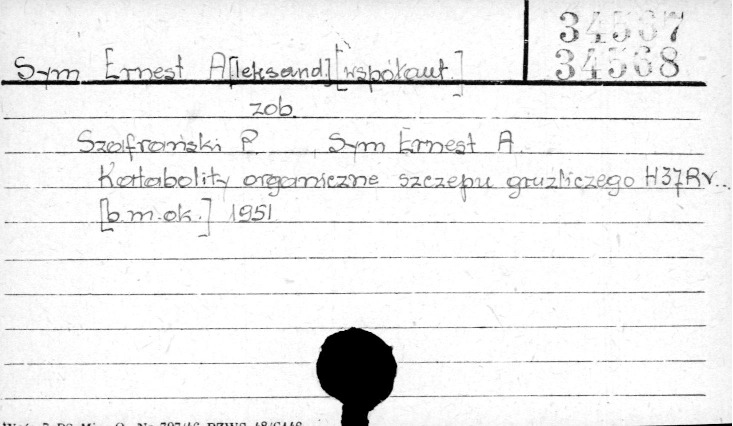 34567
34568
Sym Ernest A[leksand] [współaut.]
zob.
Szafrański P. Sym Ernest A.
Katabolity organiczne szczepu gruźliczego H37Rv...
[b.m.ok.] 1951